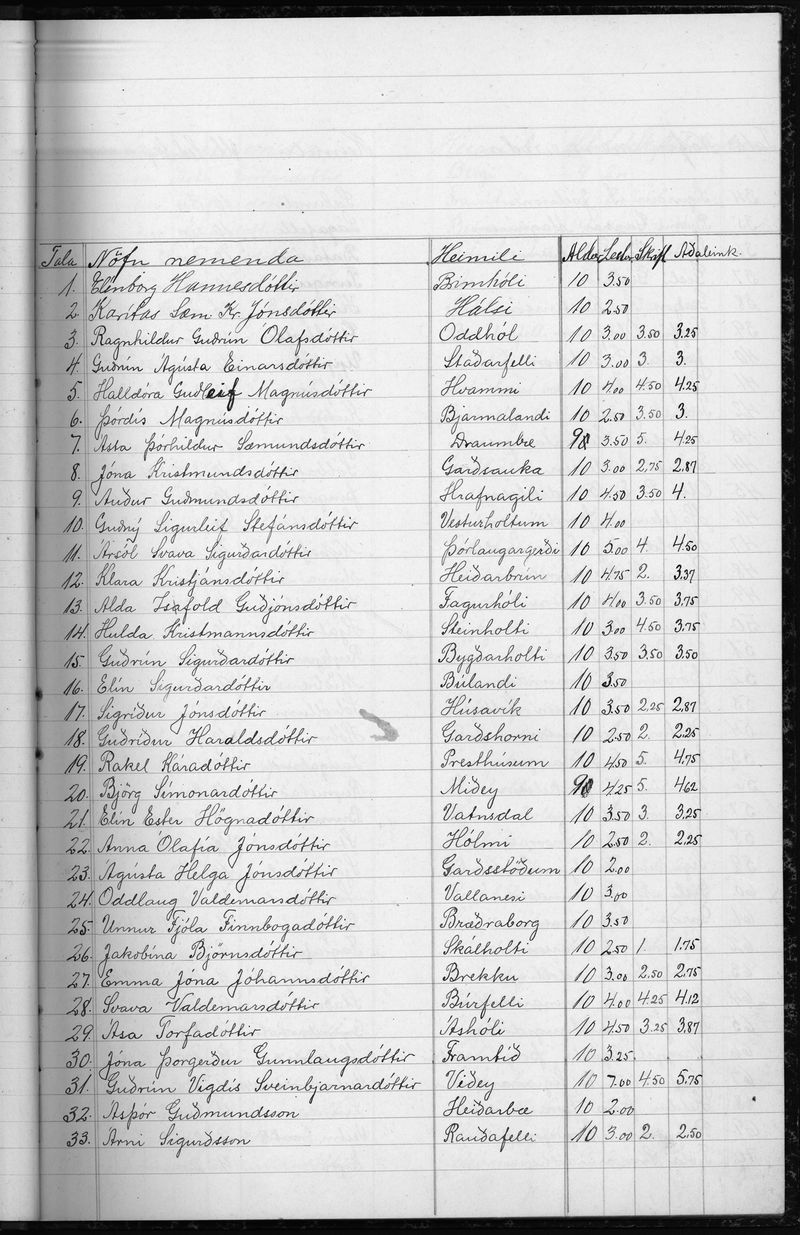 Tala Nöfn nemenda Heimili Aldur Lestur Skrift Aðaleink.
1. Elínborg Hannesdóttir Brimhóli 10 3.50
2. Karítas Sæm Kr. Jónsdóttir Hálsi 10 2.50
3. Ragnhildur Guðrún Ólafsdóttir Oddhól 10 3.00 3.50 3.25
4. Guðrún Ágústa Einarsdóttir Staðarfelli 10 3.00 3 3.
5. Halldóra Guðleif Magnúsdóttir Hvammi 10 4.00 4.50 4.25
6. Þórdís Magnúsdóttir Bjarmalandi 10 2.50 3.50 3.
7. Ásta Þórhildur Sæmundsdóttir Draumbæ 9 3.50 5. 4.25
8. Jóna Kristmundsdóttir Garðsauka 10 3.00 2,75 2.87
9. Auður Guðmundsdóttir Hrafnagili 10 4.50 3.50 4.
10. Guðný Sigurleif Stefánsdóttir Vesturholtum 10 4.00
11. Ársól Svava Sigurðardóttir Þórlaugargerði 10 5.00 4. 4.50
12. Klara Kristjánsdóttir Heiðarbrún 10 4.75 2. 3.37
13. Alda Ísafold Guðjónsdóttir Fagurhóli 10 4.00 3.50 3.75
14. Hulda Kristmannsdóttir Steinholti 10 3.00 4.50 3.75
15. Guðrún Sigurðardóttir Bygðarholti 10 3.50 3.50 3.50
16. Elín Sigurðardóttir Búlandi 10 3.50
17. Sigríður Jónsdóttir Húsavík 10 3.50 2.25 2.87
18. Guðríður Haraldsdóttir Garðshorni 10 2.50 2. 2.25
19. Rakel Káradóttir Presthúsum 10 4.50 5. 4.75
20. Björg Símonardóttir Miðey 9 4.25 5. 4.62
21. Elín Ester Högnadóttir Vatnsdal 10 3.50 3. 3.25
22. Anna Ólafía Jónsdóttir Hólmi 10 2.50 2. 2.25
23. Ágústa Helga Jónsdóttir Garðsstöðum 10 2.00
24. Oddlaug Valdemarsdóttir Vallanesi 10 3.00
25. Unnur Fjóla Finnbogadóttir Bræðraborg 10 3.50
26. Jakobína Björnsdóttir Skálholti 10 2.50 1. 1.75
27. Emma Jóna Jóhannsdóttir Brekku 10 3.00 2.50 2.75
28. Svava Valdemarsdóttir Búrfelli 10 4.00 4.25 4.12
29. Ása Torfadóttir Áshóli 10 4.50 3.25 3.87
30. Jóna Þorgerður Gunnlaugsdóttir Framtíð 10 3.25.
31. Guðrún Vigdís Sveinbjarnardóttir Viðey 10 7.00 4.50 5.75
32. Asþór Guðmundsson Heiðarbæ 10 2.00
33. Árni Sigurðsson Rauðafelli 10 3.00 2. 2.50